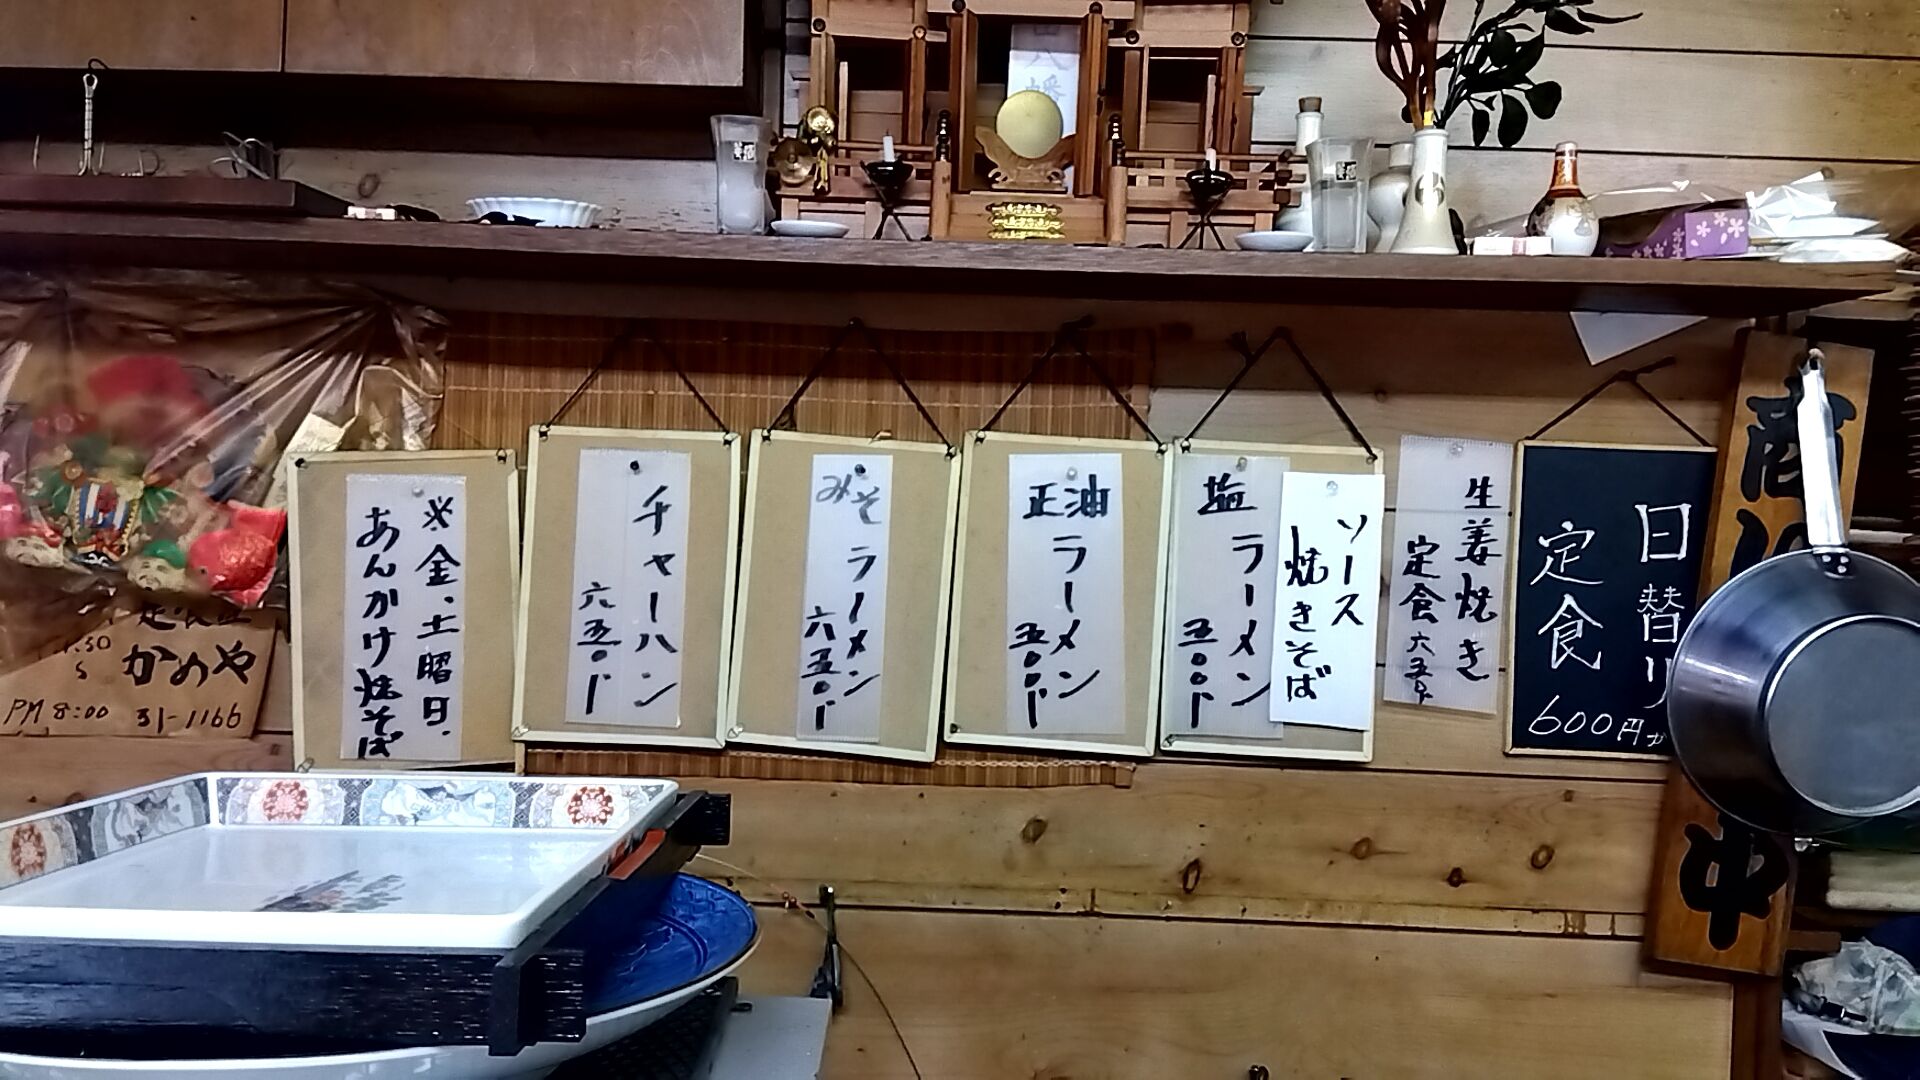 日替り
定食
600円
生姜焼き
定食 六五〇
ソース
焼きそば
塩ラーメン
五〇〇円
正油ラーメン
五〇〇円
みそラーメン
六五〇円
チャーハン
六五〇円
※金、土曜日、
あんかけ焼そば
かめや
PM 8:00
31-1166
中